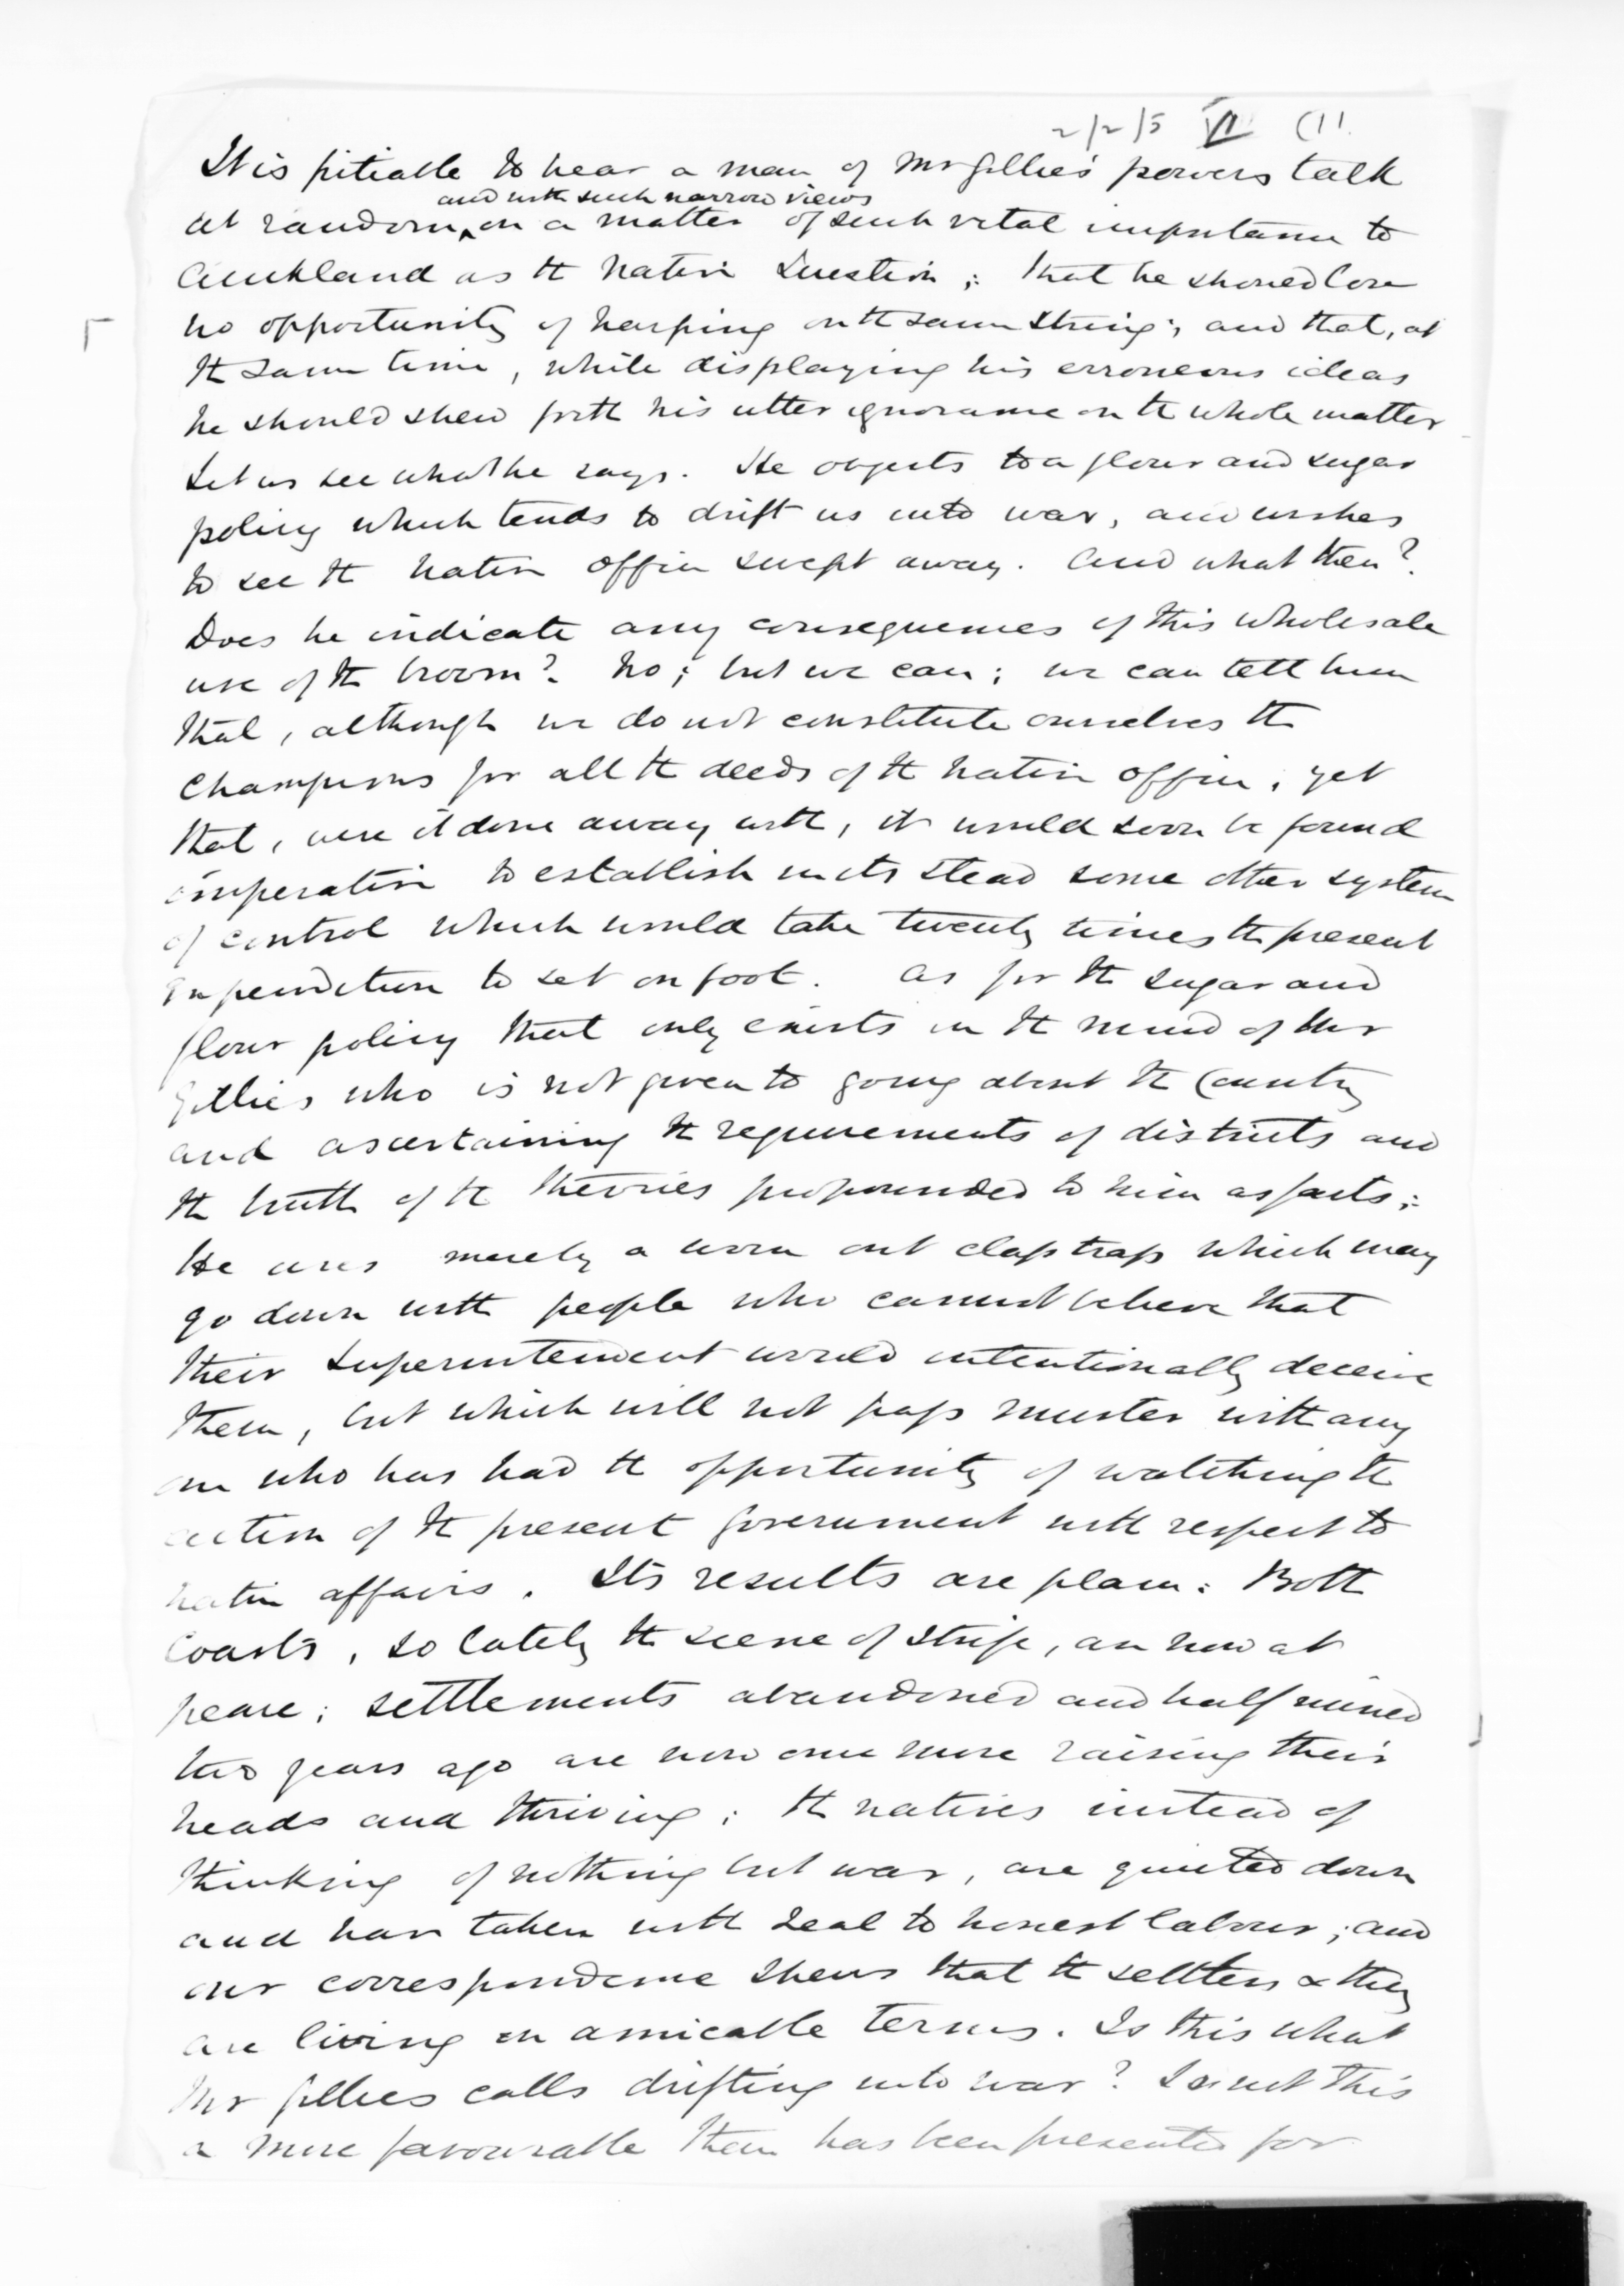 2/2/5 VI (11.
It is pitiable to hear a man of Mr Gillies' powers talk
and with such narrow views
at random, on a matter of such vital importance to
Auckland as the Native Question; that he should lose
no opportunity of harping on the same string; and that, at
the same time, while displaying his erroneous ideas
he should shew forth his utter ignorance on the whole matter
Let us see what he says. He objects to a flour and sugar
policy which tends to drift us into war, and wishes
to see the Native Office swept away. And what then?
Does he indicate any consequences of this wholesale
use of the broom? No; but we can; we can tell him
that, although we do not constitute ourselves the
Champions for all the deeds of the Native Office, yet
that, were it done away with, it would soon be found
imperative to establish in its stead some other system
of control which would take twenty times the present
expenditure to set on foot. As for the sugar and
flour policy that only exists in the mind of Mr
Gillies who is not given to going about the Country
and ascertaining the requirements of districts and
the truth of the theories propounded to him as facts;
He uses merely a worn out claptrap which may
go down with people who cannot believe that
their Superintendent would intentionally deceive
them, but which will not pass muster with any
one who has had the opportunity of watching the
action of the present Government with respect to
native affairs. Its results are plain: Both
Coasts, so lately the scene of strife, are now at
peace; settlements abandoned and half ruined
two years ago are now once more raising their
heads and thriving; the natives instead of
thinking of nothing but war, are quieted down
and have taken with zeal to honest labour; and
our correspondence shews that the settlers & they
are living on amicable terms. Is this what
Mr Gillies calls drifting into war? Is not this
a more favourable than has been presented for